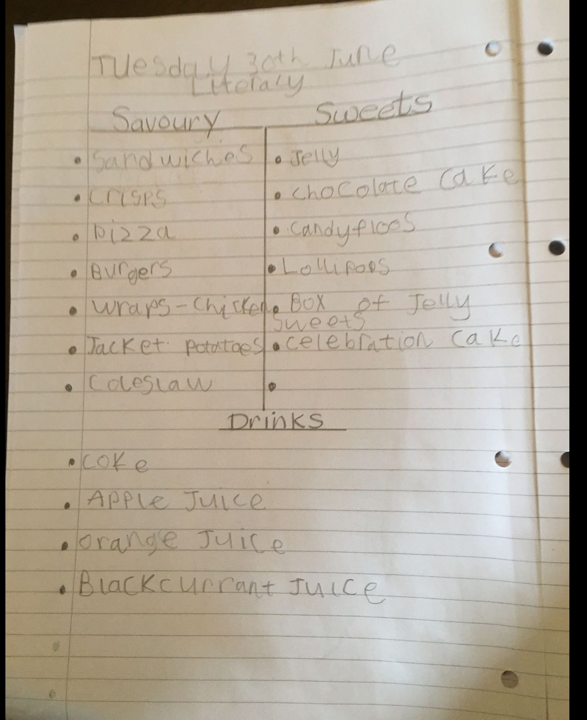 Tuesday 30th June
Literacy
Savoury
Sweets
• Sandwiches
• Jelly
• Crisps
• Chocolate Cake
• Pizza
• Candyfloos
• Burgers
• Lollipops
• Wraps-Chicken
• Box of Jelly
Sweets
• Jacket Potatoes
• Celebration Cake
• Coleslaw
•
Drinks
• Coke
• Apple Juice
• Orange Juice
• Blackcurrant Juice